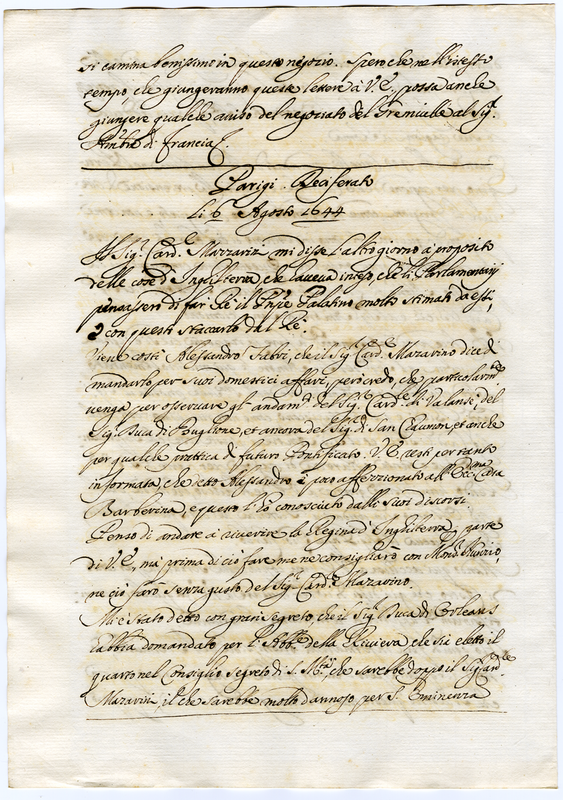 si camina benissimo in questo negozio. Spero che nell'istesso
tempo, che giungeranno queste lettere à V. E., possa anche
giungere qualche aviso del negotiato del Gremuille al Sig.r
Amb.re di Francia.
Parigi. Deciferato
Li 6 Agosto 1644
Il Sig.r Card. Mazzarini mi disse l'altro giorno a proposito
delle cose d'Inghilterra, che haveva inteso, che li Parlamentarij
pensassero di far Rè il Prñpe Palatino molto stimato da essi,
e con questi staccarlo dal Rè.
Viene costì Alessandro Fabri, che il Sig.r Card. Mazarino dice di
mandarlo per suoi domestici affari, però credo, che particolarm.te
venga per osservare gl'andam.ti del Sig.r Card. di Valansé, del
Sig. Duca di Buglione, et ancora del Sig.r di San Chaumon, et anche
per qualche prattica di futuro Pontificato. V. E. resti per tanto
informata che detto Alessandro è poco affezzionato all'Ecc.ma Casa
Barberina, e questo l'hò conosciuto dalli suoi discorsi.
Penso di andare à riverire la Regina d'Inghilterra, parte
di V. E., mà prima di ciò fare me ne consigliarò con Mons.
ne ciò farò senza gusto del Sig.r Card. Mazarino.
Mi è stato detto con gran segreto che il Sig.r Duca di Orleans
habbia domandato per l'Abb.te della Riviera che sia eletto il
quarto nel Consiglio segreto di S. M.tà, che sarebbe doppo il Sig. Card.le
Mazarini, il che sarebbe molto dannoso per S. Eminenza